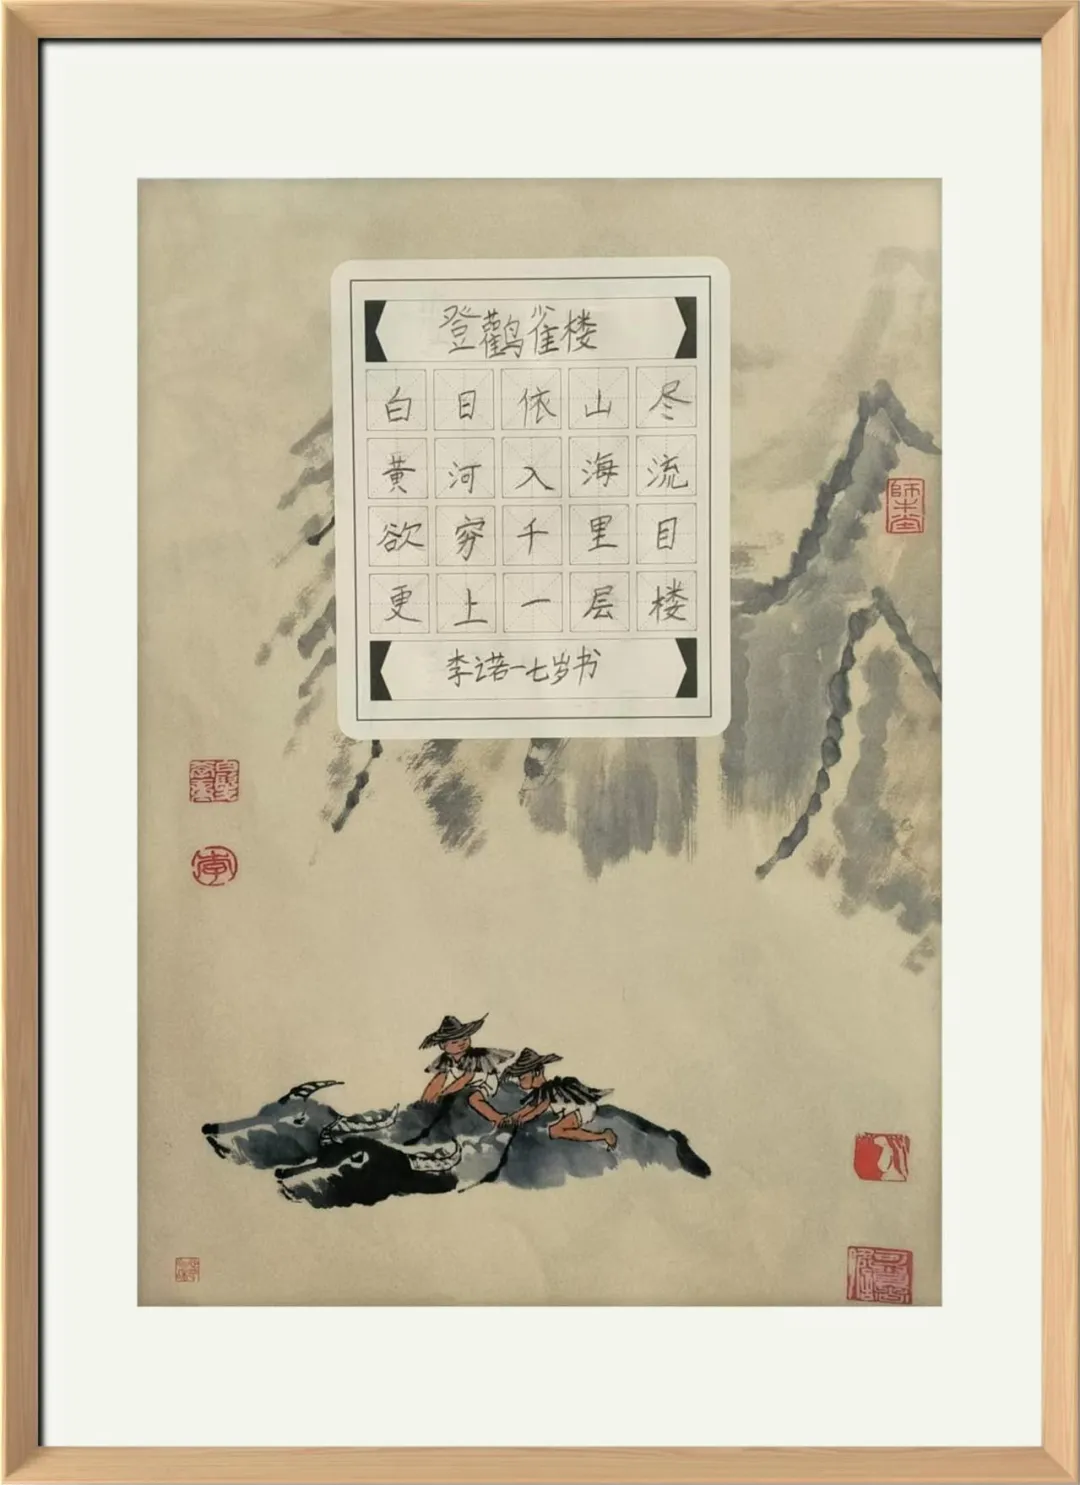 登鹳雀楼
白目依山尽
黄河入海流
欲穷千里目
更上一层楼
李诺一七岁书
師牛堂